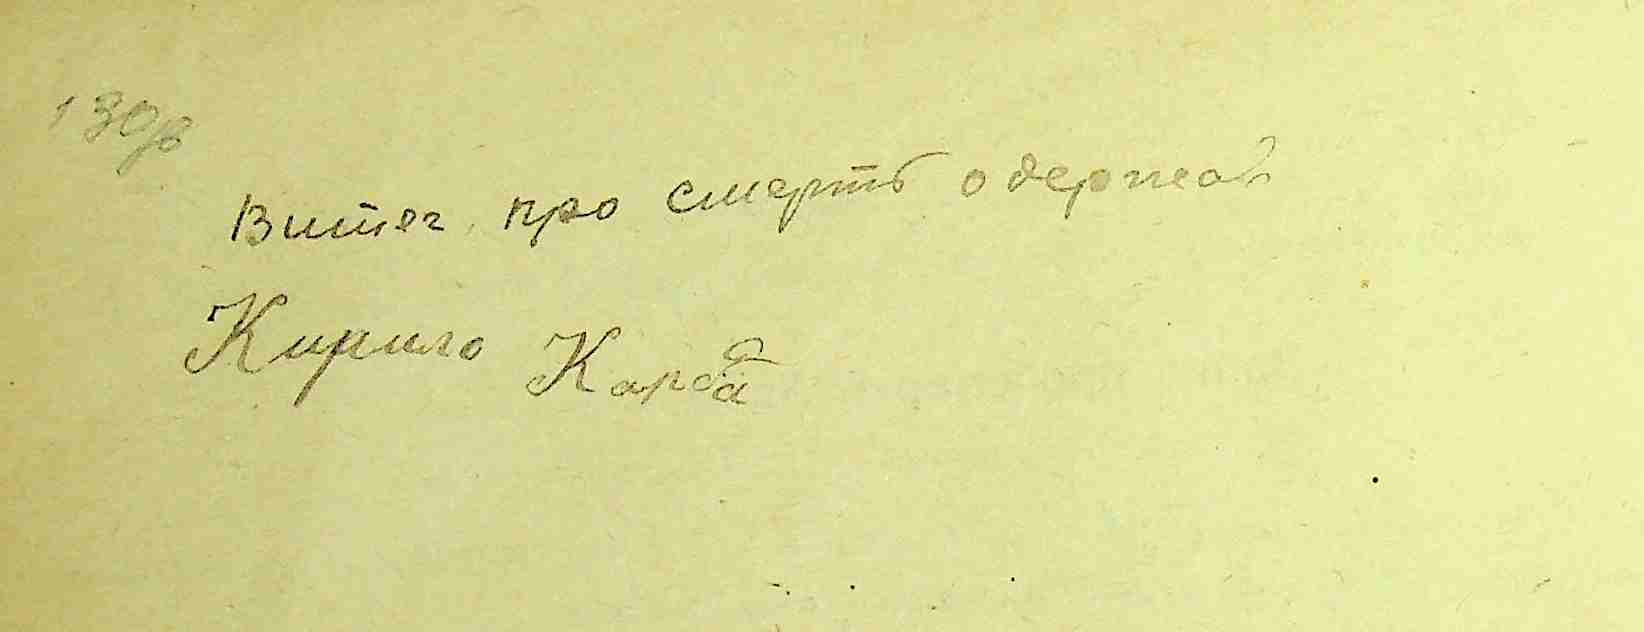 130в
Витяг про смерть одержав
Кирило Карба